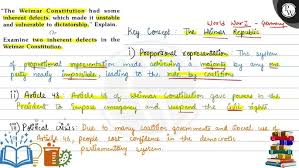 "The Weimar Constitution had some
inherent defects, which made it unstable
and vulnerable to dictatorship." Explain.
Or
Examine two inherent defects in the
Weimar Constitution.
World War I - Germany
Key Concept : The Weimar Republic
i) Proportional representation: The system
of proportional representation made achieving a majority by any one
party nearly impossible, leading to the rule by coalitions.
ii) Article 48: Article 48 of Weimar Constitution gave powers to the
President to impose emergency and suspend the civic rights.
iii) Political crisis: Due to many coalition governments and liberal use of
Article 48, people lost confidence in the democratic
parliamentary system.